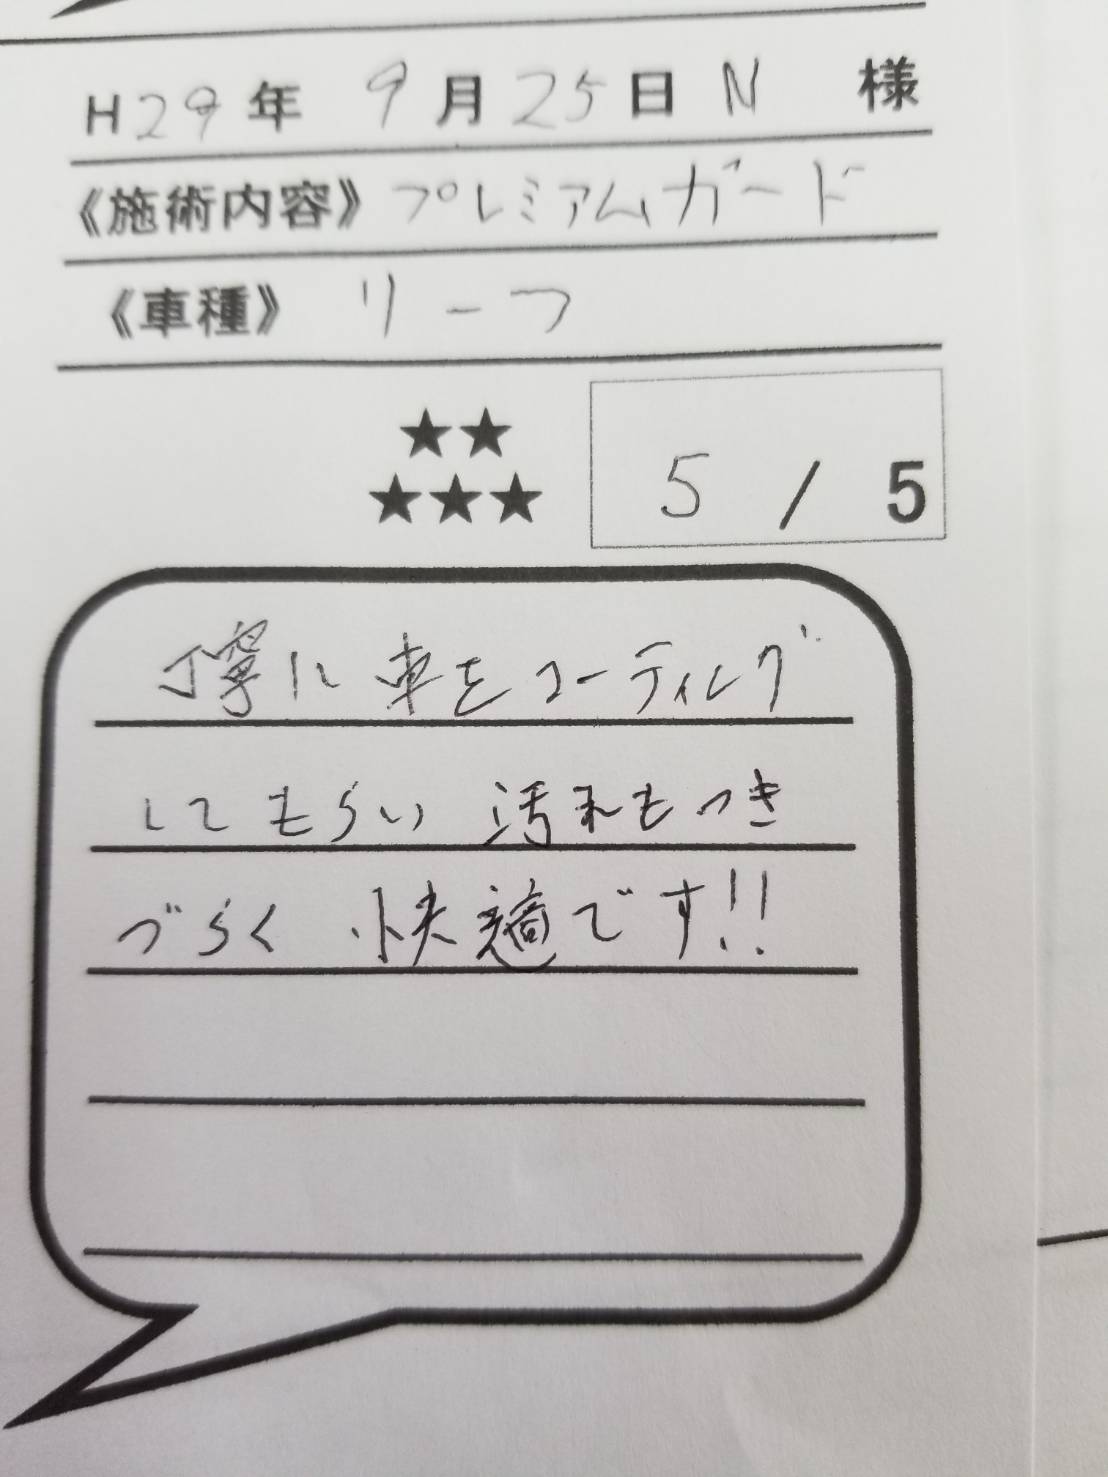 H29年 9月25日 N 様
《施術内容》プレミアムガード
《車種》 リーフ
★★
★★★
5 / 5
丁寧に車をコーティング
してもらい 汚れもつき
づらく 快適です!!